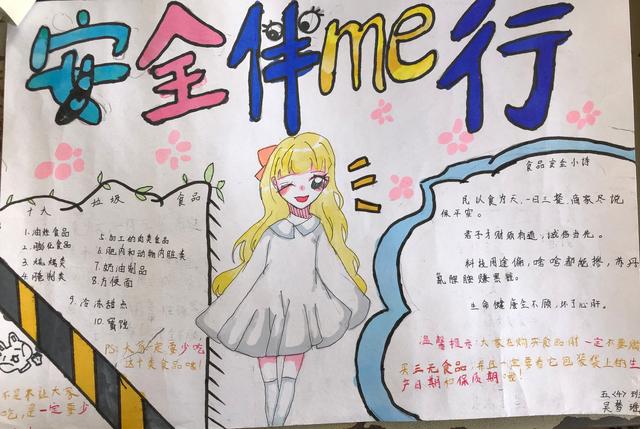 安全伴me行
十大垃圾食品
1.油炸食品
2.膨化食品
3.烧烤类
4.腌制类
5.加工的肉类食品
6.肥肉和动物内脏类
7.奶油制品
8.方便面
9.冷冻甜点
10.蜜饯
PS:大家一定要少吃
这十类食品哦!
不是不让大家
吃,是一定要少
食品安全小诗
民以食为天,一日三餐,商家尽说
保平安。
君子才财须有道,诚格当先。
科技用途偏,啥啥都能掺,苏丹
氰胺赚黑钱。
生命健康全不顾,坏了心肝。
温馨提示:大家在购买食品时一定不要购
买三元食品,并且一定要看它包装袋上的生
产日期和保质期哦!
五、(4)班
吴梦